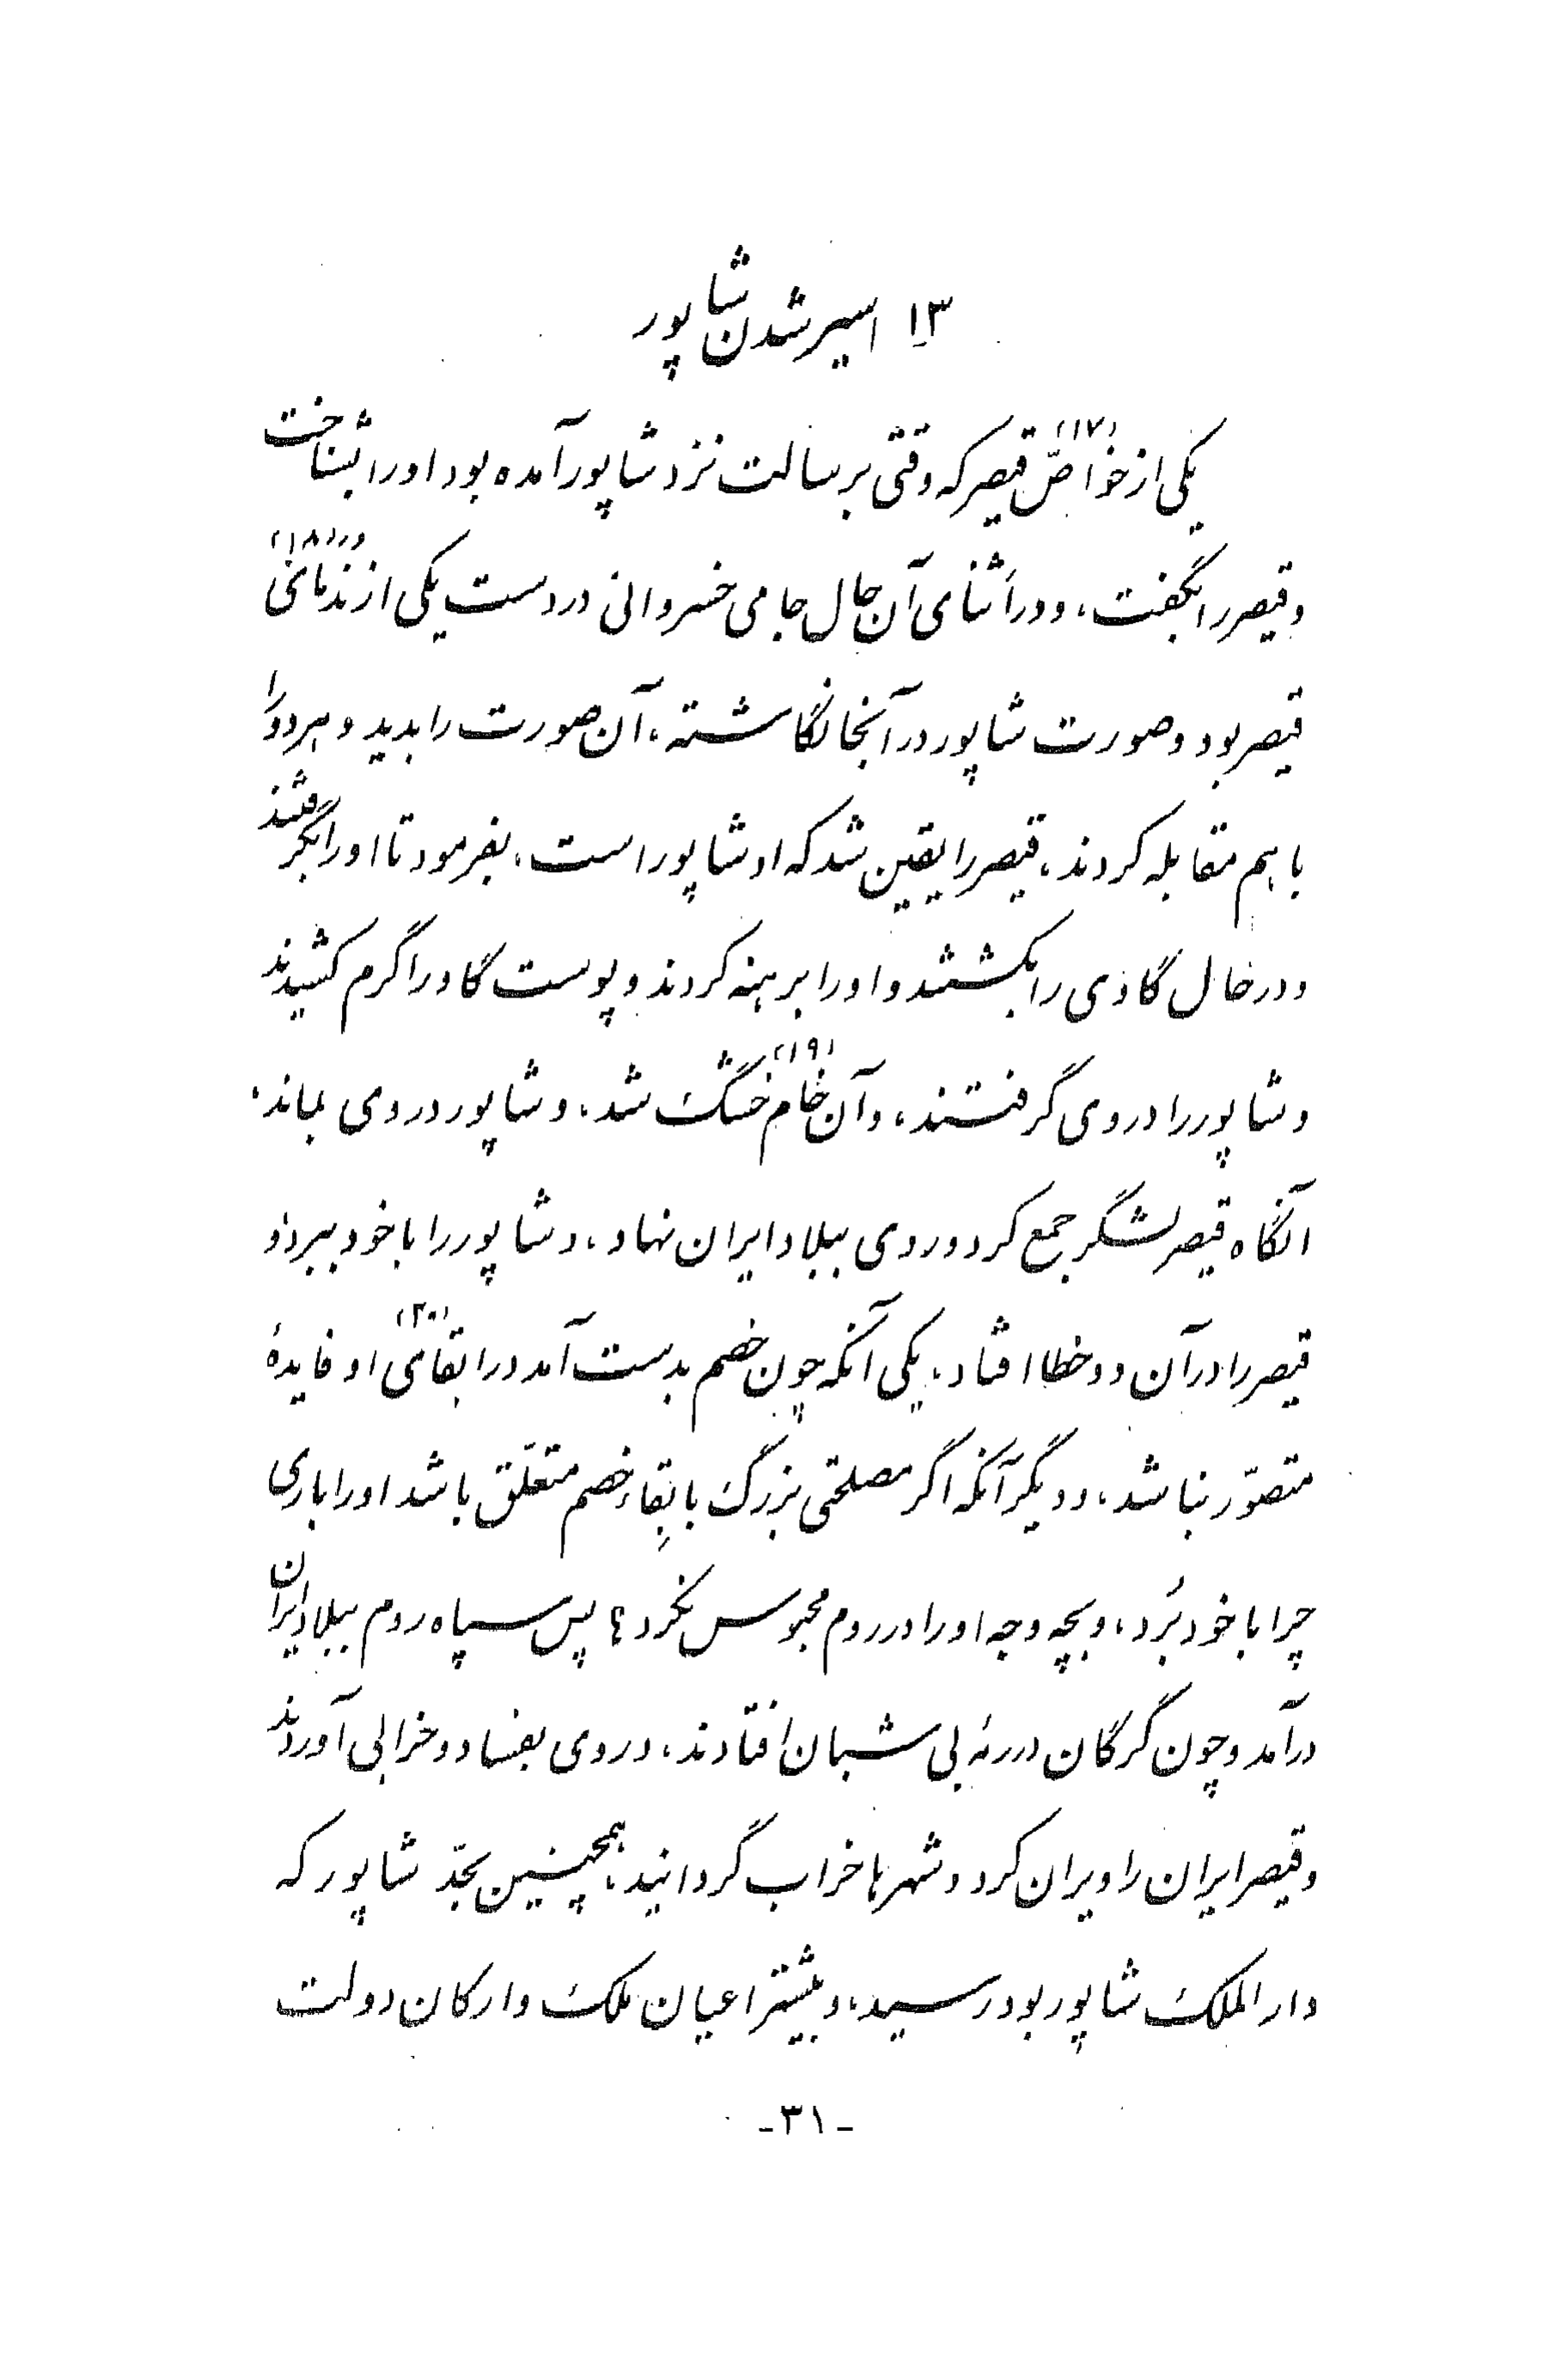 ۱۳ اسیر شدن شاپور
یکی از خواصّ (۱۷) قیصر که وقتی برسالت نزد شاپور آمده بود اورا بشناخت
و قیصر را بگفت، و در أثنای آن حال جامی خسروانی در دست یکی از ندمای (۱۸)
قیصر بود و صورت شاپور در آنجا نگاشته، آن صورت را بدید و هر دو را
با هم مقابله کردند، قیصر را یقین شد که او شاپور است، بفرمود تا اورا بگرفتند
و در حال گاوی را بکشتند و اورا برهنه کردند و پوست گاو را گرم کشیدند
و شاپور را در وی گرفتند، و آن خام (۱۹) خشک شد، و شاپور در وی بماند.
آنگاه قیصر لشگر جمع کرد و روی ببلاد ایران نهاد، و شاپور را با خود ببرد، و
قیصر را در آن دو خطا افتاد، یکی آنکه چون خصم بدست آمد در ابقای (۲۰) او فایدهٔ
متصوّر نباشد، و دیگر آنکه اگر مصلحتی بزرگ بابقاء خصم متعلّق باشد اورا باری
چرا با خود بُرد، و بچه وجه اورا در روم محبوس نکرد؟ پس سپاه روم ببلاد ایران
درآمد و چون گرگان در رمهٔ بی شبان افتادند، و روی بفساد و خرابی آوردند
و قیصر ایران را ویران کرد و شهرها خراب گردانید، همچنین بجدّ شاپور که
دار الملک شاپور بود رسید، و بیشتر اعیان ملک و ارکان دولت
- ۳۱ -